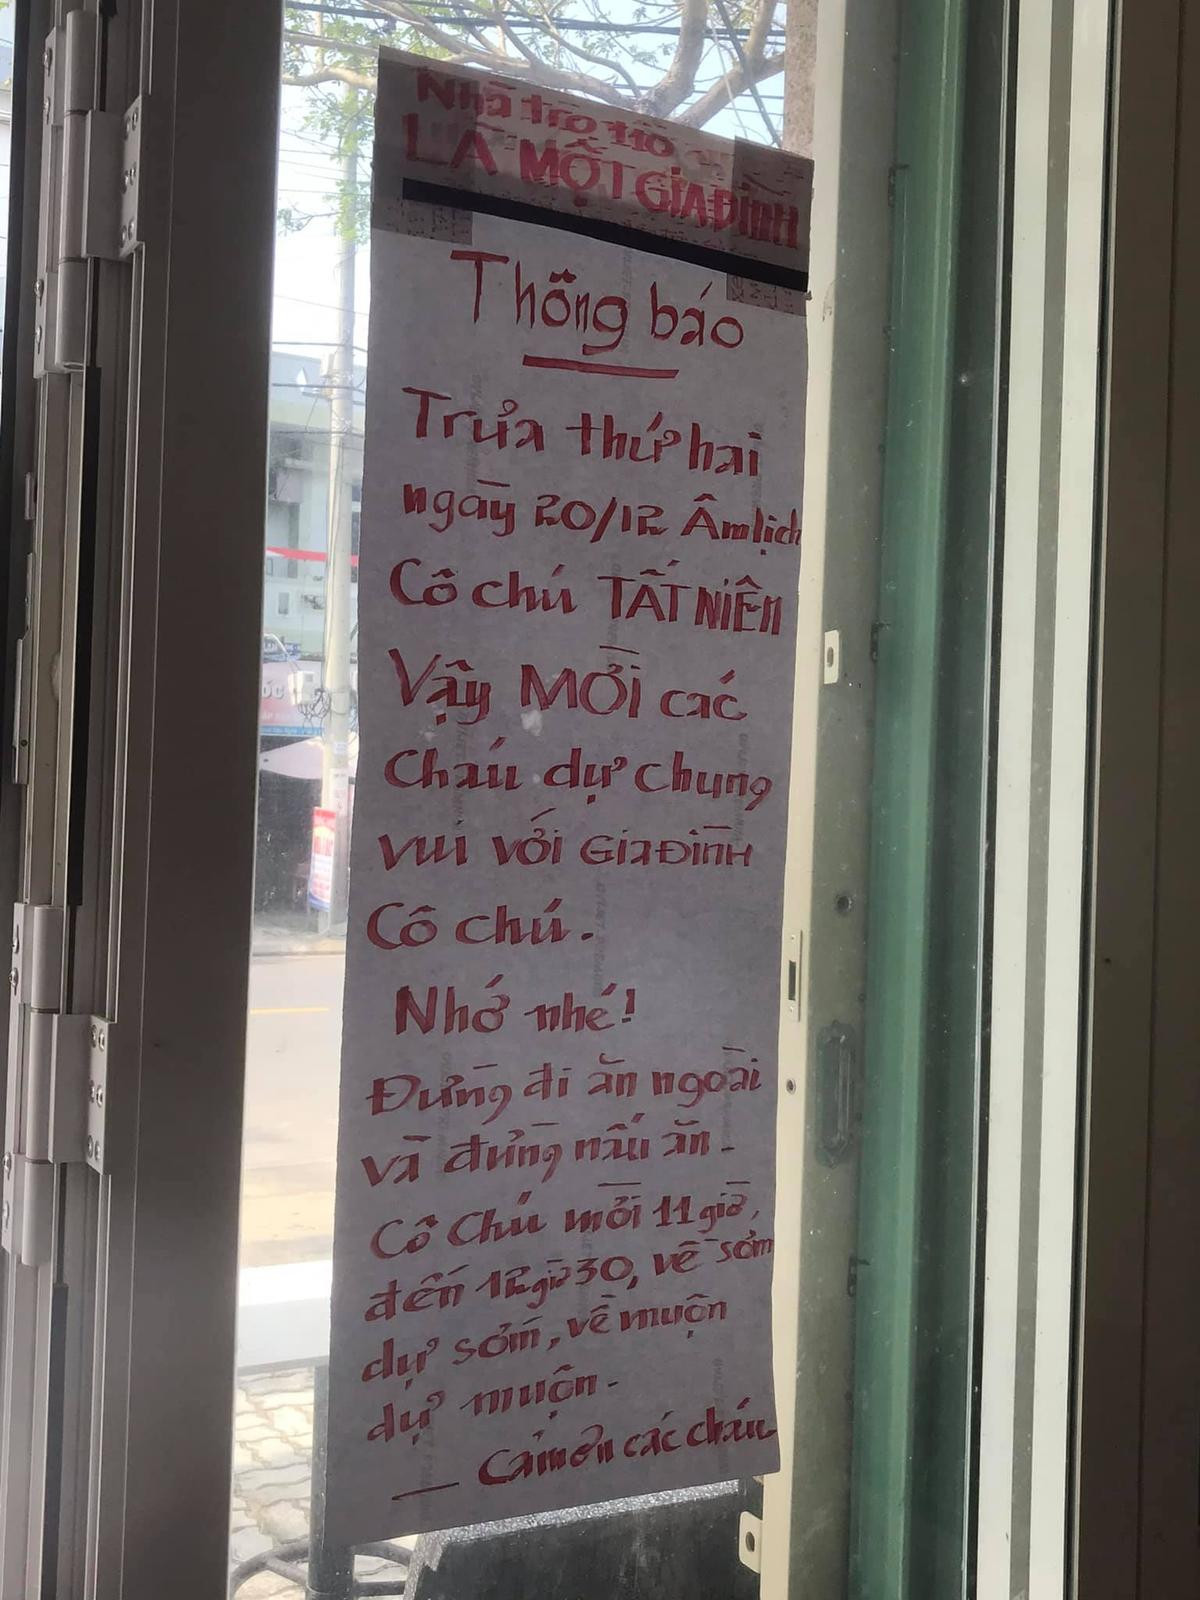 Nhà trọ 110
LÀ MỘT GIA ĐÌNH
Thông báo
Trưa thứ hai
ngày 20/12 Âm lịch
Cô chú TẤT NIÊN
Vậy MỜI các
cháu dự chung
vui với GIA ĐÌNH
Cô chú.
Nhớ nhé!
Đừng đi ăn ngoài
và đừng nấu ăn.
Cô Chú mời 11 giờ,
đến 12 giờ 30, về sớm
dự sớm, về muộn
dự muộn.
— Cảm ơn các cháu